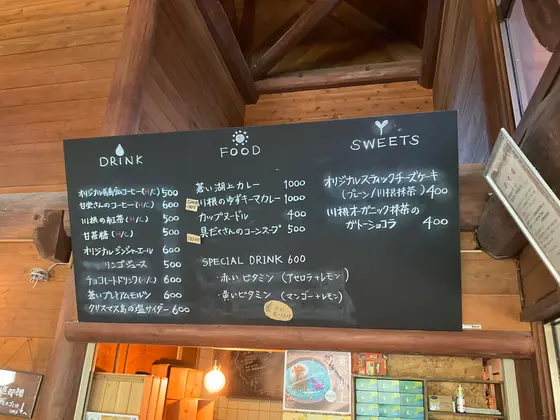 DRINK
オリジナル長島ブレンドコーヒー(H/C) 500
甘楽さんのコーヒー(H/C) 600
川根の紅茶(H/C) 500
甘茶糖(H/C) 500
オリジナルジンジャーエール 600
リンゴジュース 500
チョコレートドリンク(H/C) 600
蒼いプレミアムモルツ 600
クリスマス島の塩サイダー 600
FOOD
蒼い湖上カレー 1000
川根のゆずキーマカレー 1000
カップヌードル 400
具だくさんのコーンスープ 500
SPECIAL DRINK 600
・赤いビタミン (アセロラ+レモン)
・黄いビタミン (マンゴー+レモン)
SWEETS
オリジナルスティックチーズケーキ
(プレーン/川根抹茶) 400
川根オーガニック抹茶の
ガトーショコラ 400